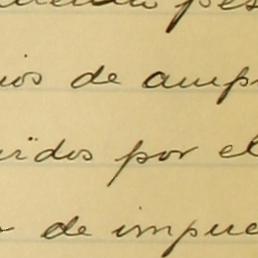 ios de amp
uidos por el
de impue